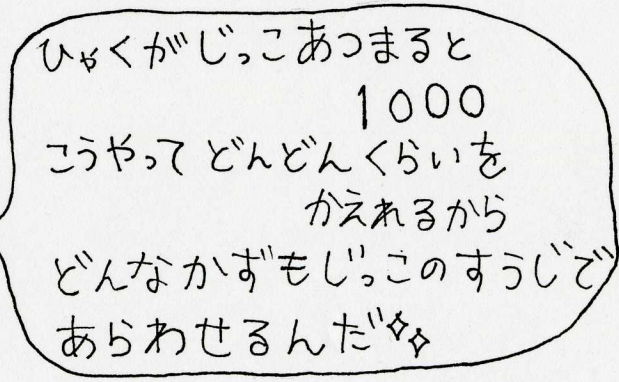 ひゃくがじっこあつまると
1000
こうやって どんどん くらいを
かえれるから
どんなかずもじっこのすうじで
あらわせるんだ